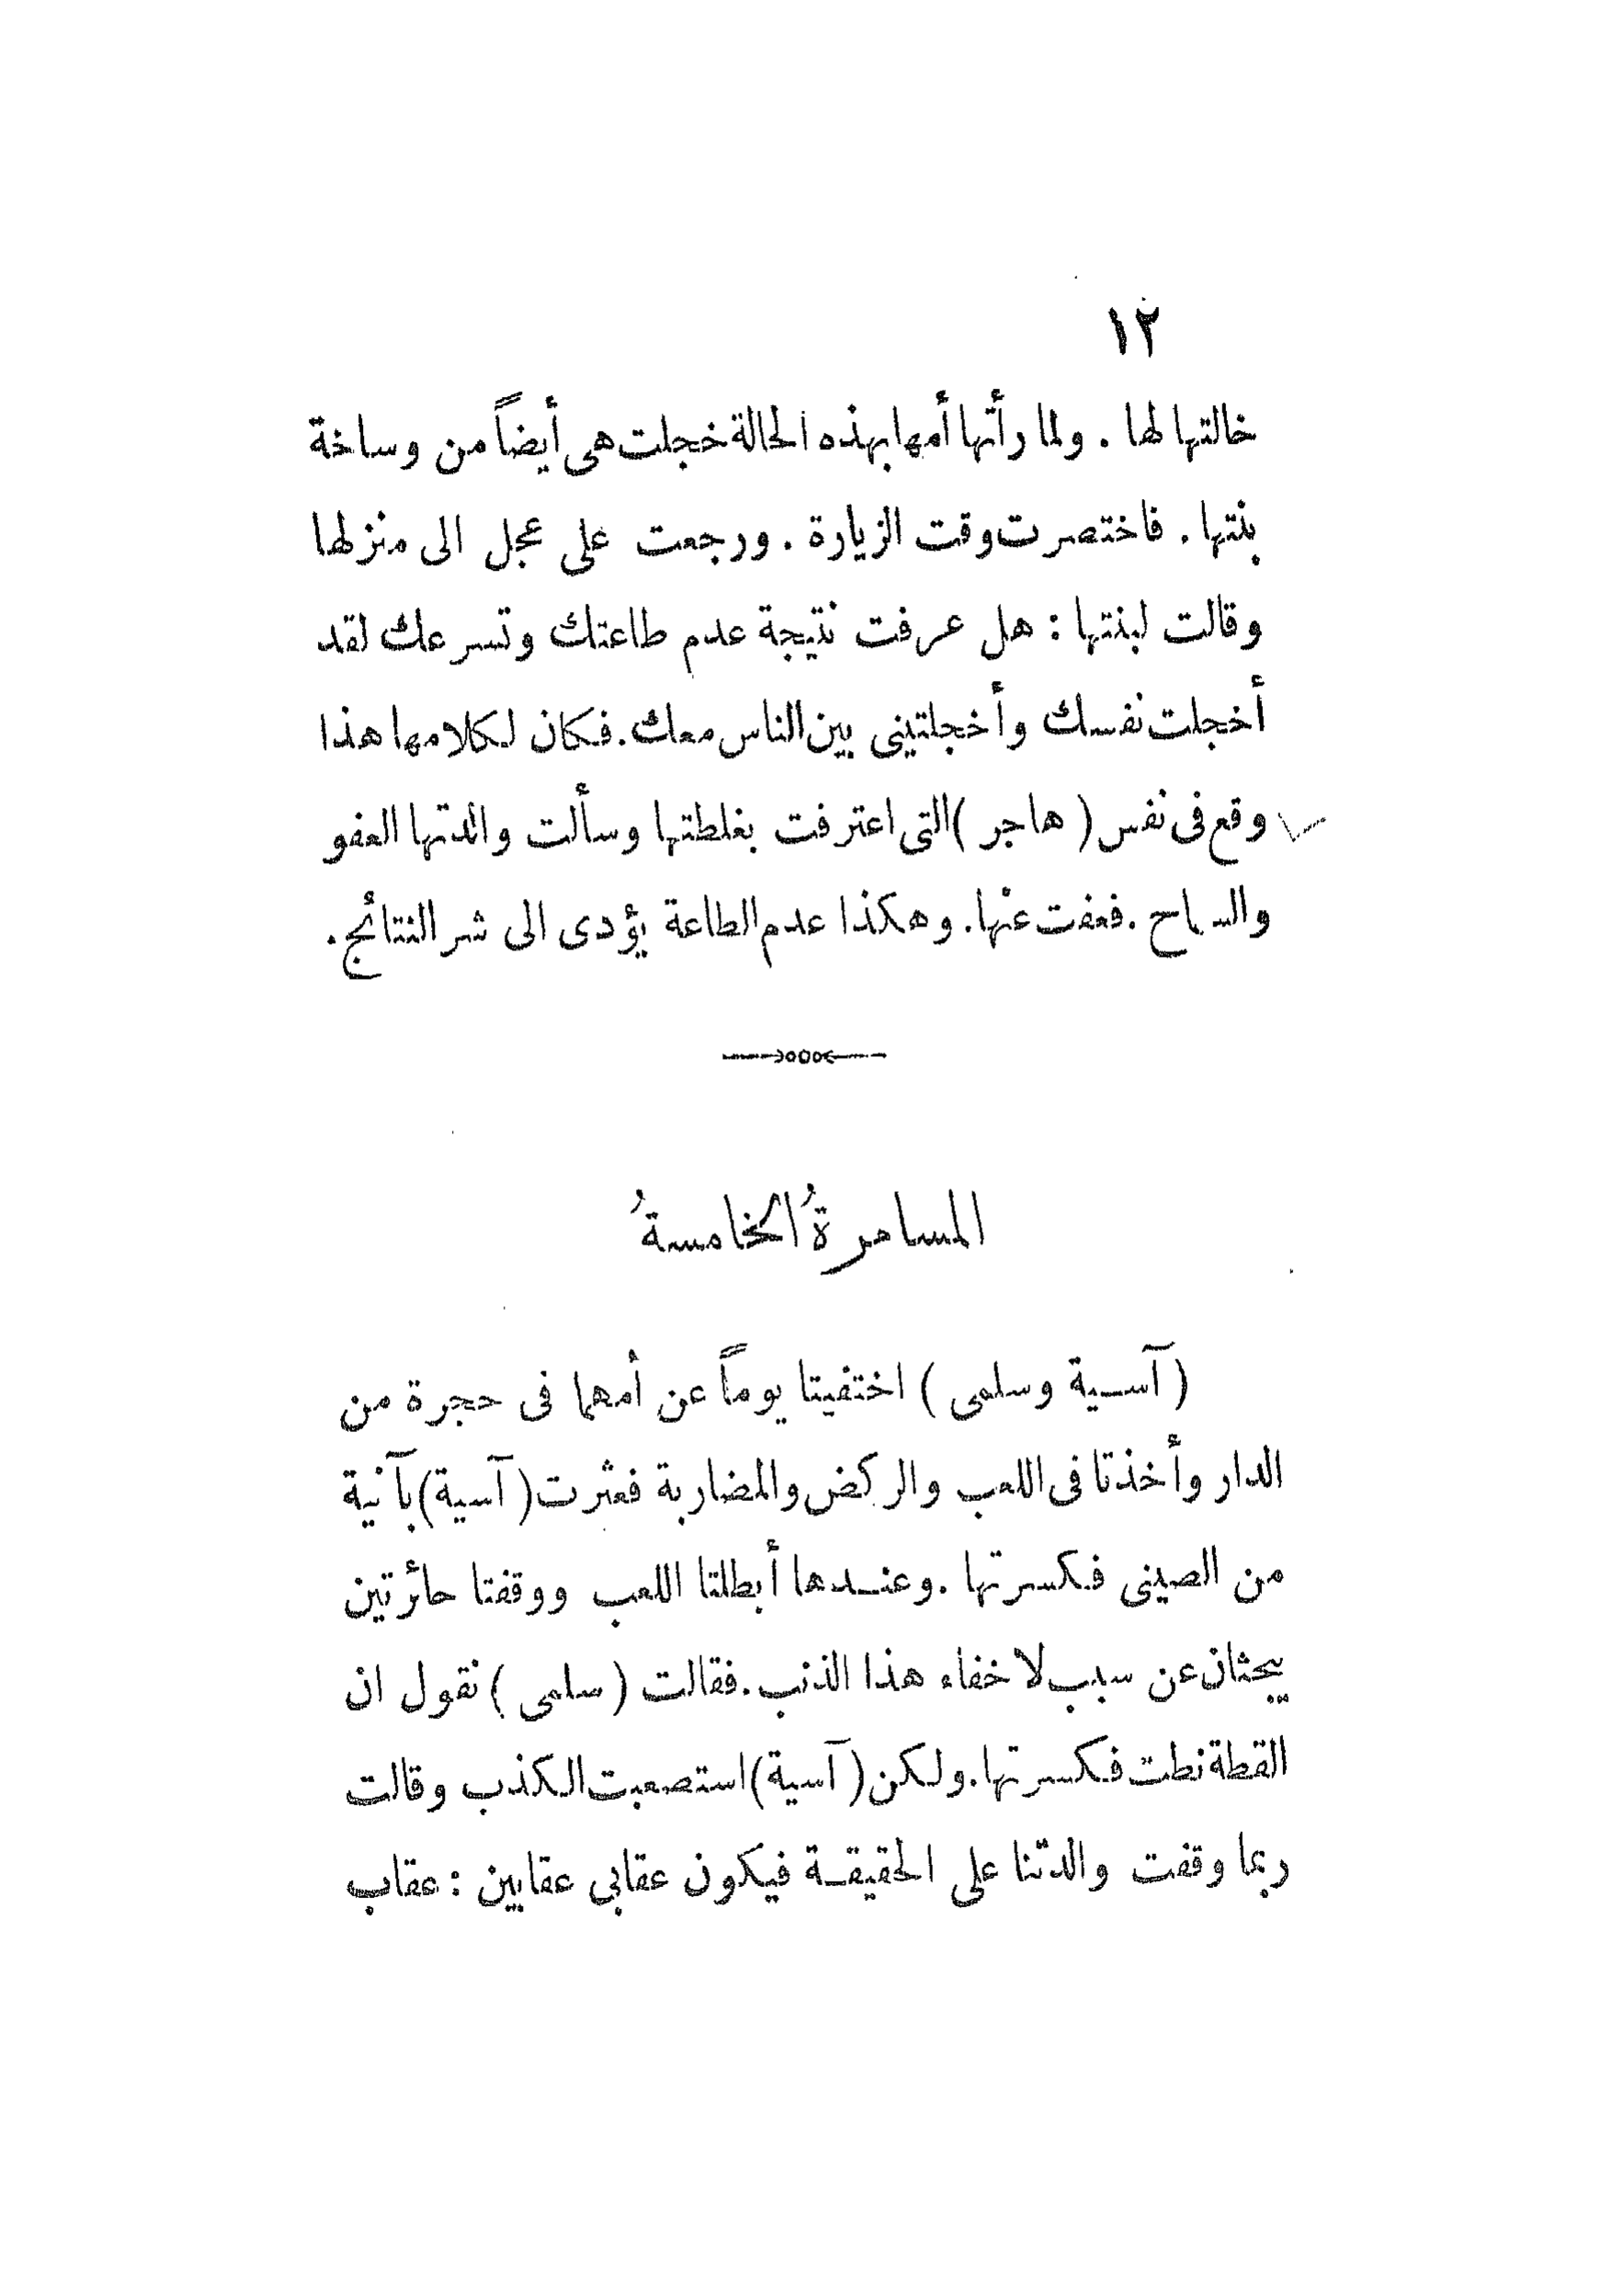 ١٢
خالتها لها . ولما رأتها أمها بهذه الحالة خجلت هى أيضاً من وساخة
بنتها . فاختصرت وقت الزيارة . ورجعت على عجل الى منزلها
وقالت لبنتها : هل عرفت نتيجة عدم طاعتك وتسرعك لقد
أخجلت نفسك وأخجلتينى بين الناس معك . فكان لكلامها هذا
وقع فى نفس ( هاجر ) التى اعترفت بغلطتها وسألت والدتها العفو
والسماح . فعفت عنها . وهكذا عدم الطاعة يؤدى الى شر النتائج .
المسامرةُ الخامسةُ
( آسية وسلمى ) اختفيتا يوماً عن أمهما فى حجرة من
الدار وأخذتا فى اللعب والركض والمضاربة فعثرت ( آسية ) بآنية
من الصينى فكسرتها . وعندها أبطلتا اللعب ووقفتا حائرتين
يبحثان عن سبب لاخفاء هذا الذنب . فقالت ( سلمى ) نقول ان
القطة نطت فكسرتها . ولكن ( آسية ) استصعبت الكذب وقالت
ربما وقفت والدتنا على الحقيقة فيكون عقابى عقابين : عقاب